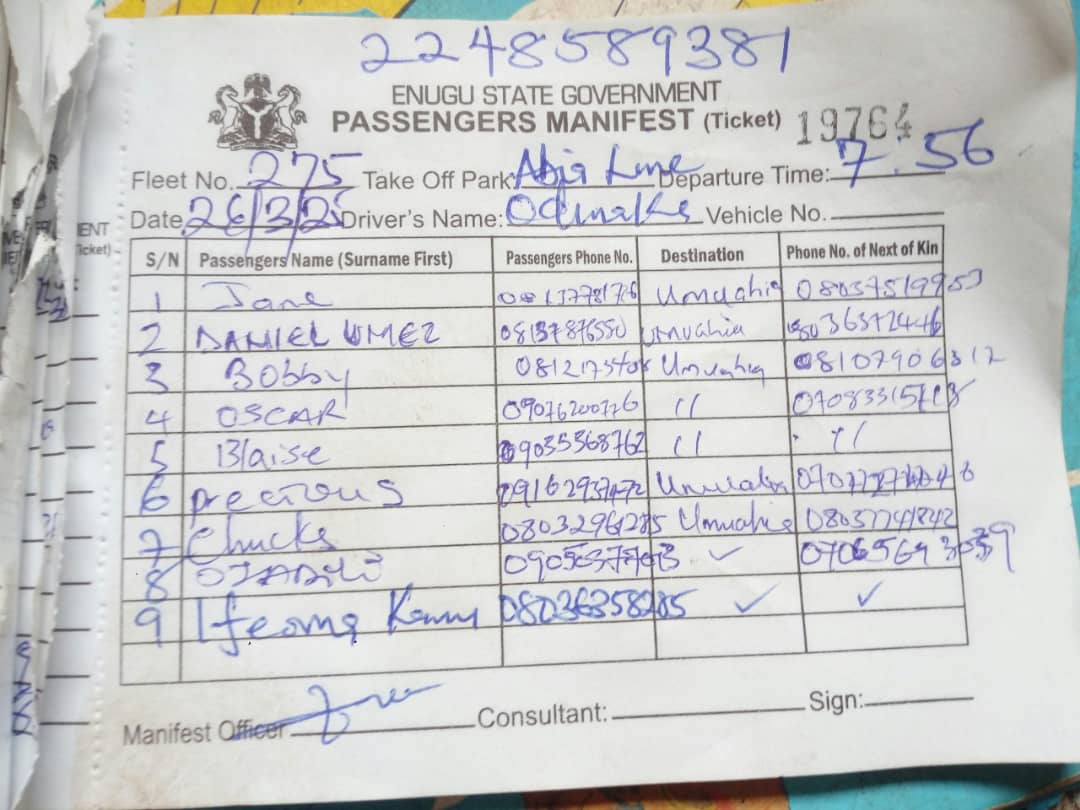 2248589381
ENUGU STATE GOVERNMENT
PASSENGERS MANIFEST (Ticket) 19764
Fleet No. 275 Take Off Park: Abia Line Departure Time: 7.56
Date 26/3/25 Driver's Name: Vehicle No.
S/N Passengers Name (Surname First) Passengers Phone No. Destination Phone No. of Next of Kin
1 Jane Umuahia 08037519953
2 DANIEL UMEZ 08137876550 Umuahia
3 Bobby Umuahia 08107906812
4 OSCAR 09076200776 //
5 Blaise 09035368762 // //
6 precious Umuahia
7 Chucks 08032961285 Umuahia 08037741842
8 ✓
9 Ifeoma 08036358285 ✓ ✓
Manifest Officer Consultant: Sign:
ENT
Ticket)